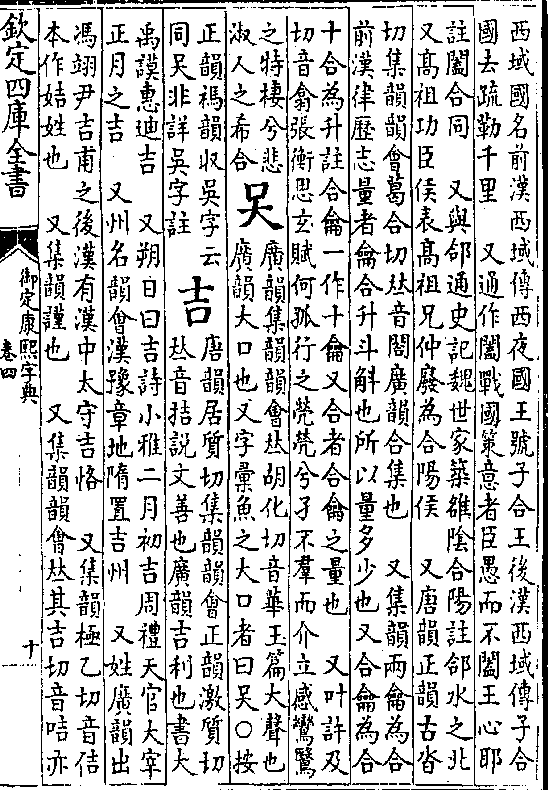 西域國名前漢西域傳西夜國王號子合王後漢西域傳子合
國去疏勒千里　又通作闔戰國策意者臣愚而不闔王心耶
註闔合同　又與郃通史記魏世家築雒陰合陽註郃水之北
又髙祖功臣侯表髙祖兄仲廢為合陽侯　又唐韻正韻古沓
切集韻韻會葛合切𠀤音閤廣韻合集也　又集韻兩龠為合
前漢律歷志量者龠合升斗斛也所以量多少也又合龠為合
十合為升註合龠一作十龠又合者合龠之量也　又叶許及
切音翕張衡思玄賦何孤行之煢煢兮孑不羣而介立感鸞鷖
之特棲兮悲淑人之希合
㕦
廣韻集韻韻會𠀤胡化切音華玉篇大聲也
廣韻大口也又字彙魚之大口者曰㕦○按
正韻禡韻収吳字云同㕦非詳吳字註
吉
唐韻居質切集韻韻會正韻激質切
𠀤音拮説文善也廣韻吉利也書大
禹謨惠迪吉　又朔日曰吉詩小雅二月初吉周禮天官大宰
正月之吉　又州名韻會漢豫章地隋置吉州　又姓廣韻出
馮翊尹吉甫之後漢有漢中太守吉恪　又集韻極乙切音佶
本作姞姓也　又集韻謹也　又集韻韻會𠀤其吉切音咭亦
欽定四庫全書
御定康熙字典
卷四
十